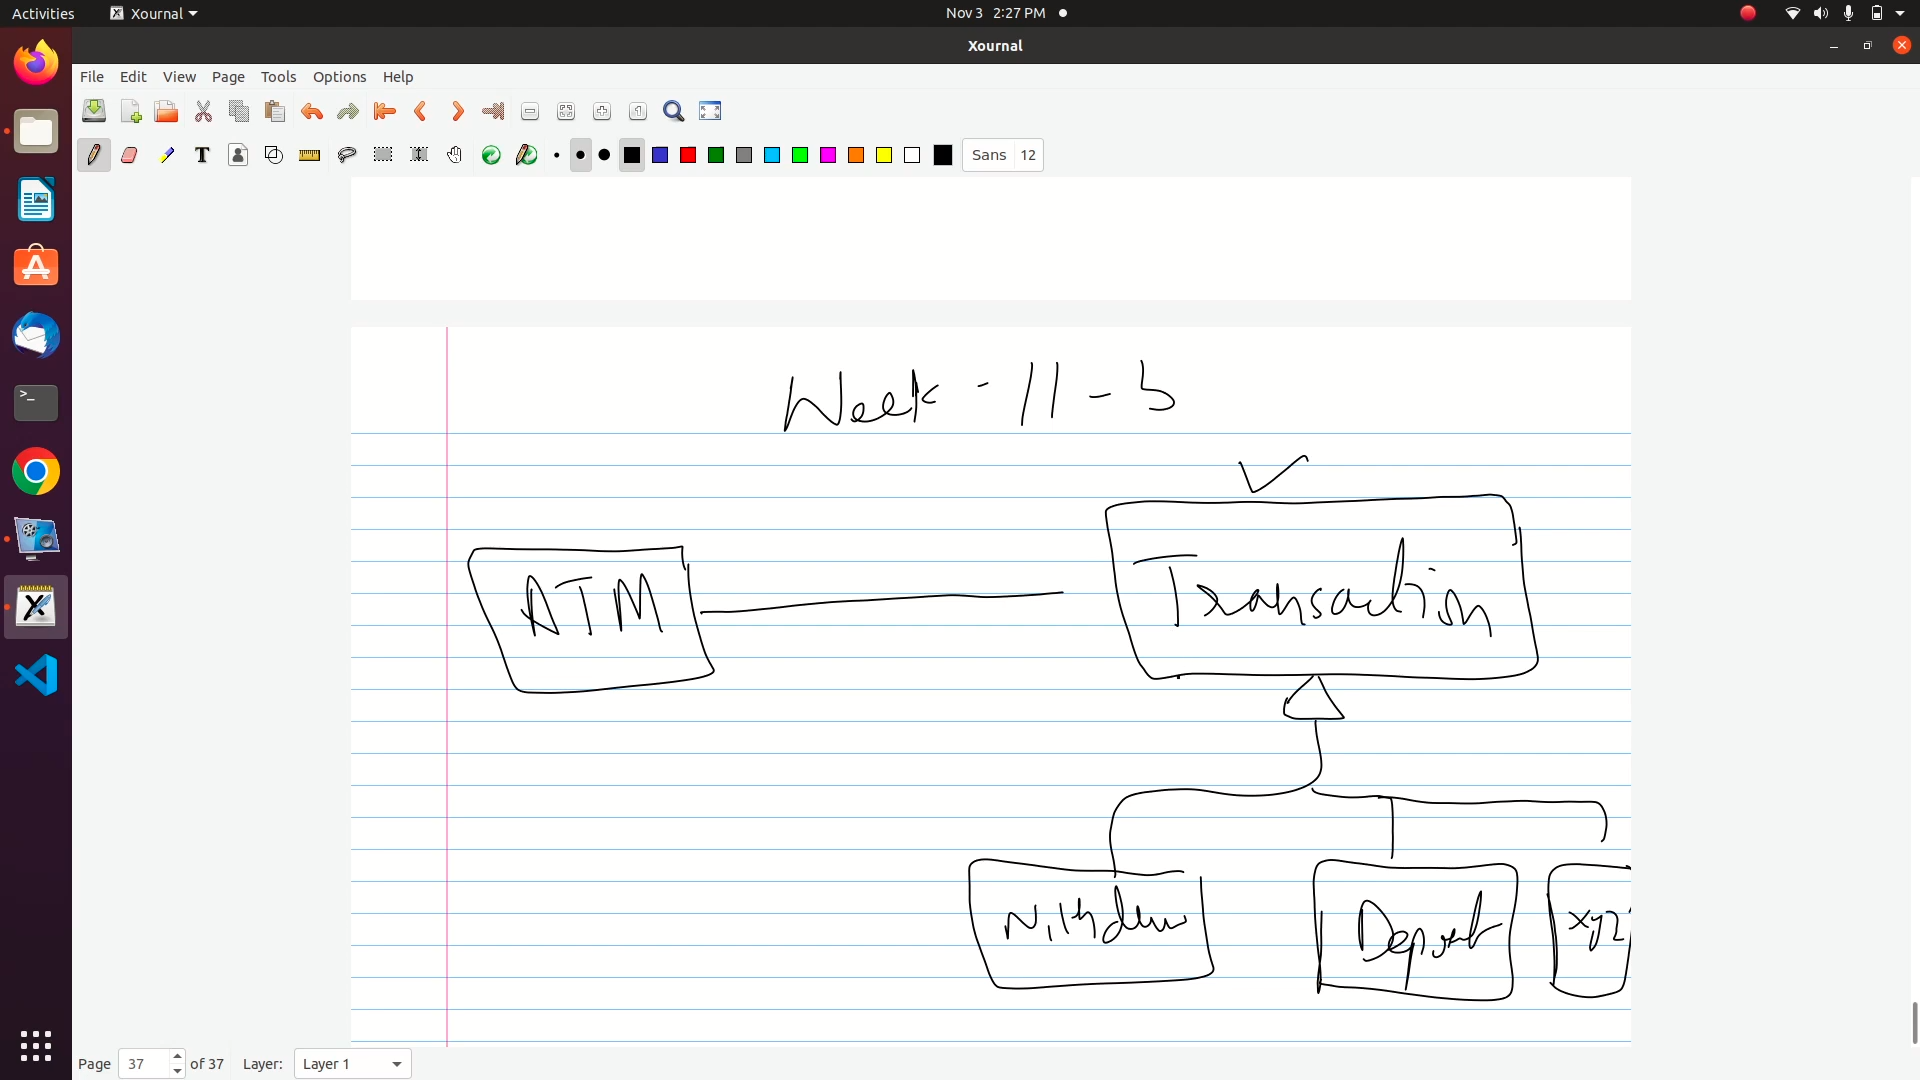 Activities Xournal Nov 3 2:27 PM
Xournal
File Edit View Page Tools Options Help
Sans 12
Week - 11 - 3
ATM Transaction
Withdraw Deposit xyz
Page 37 of 37 Layer: Layer 1